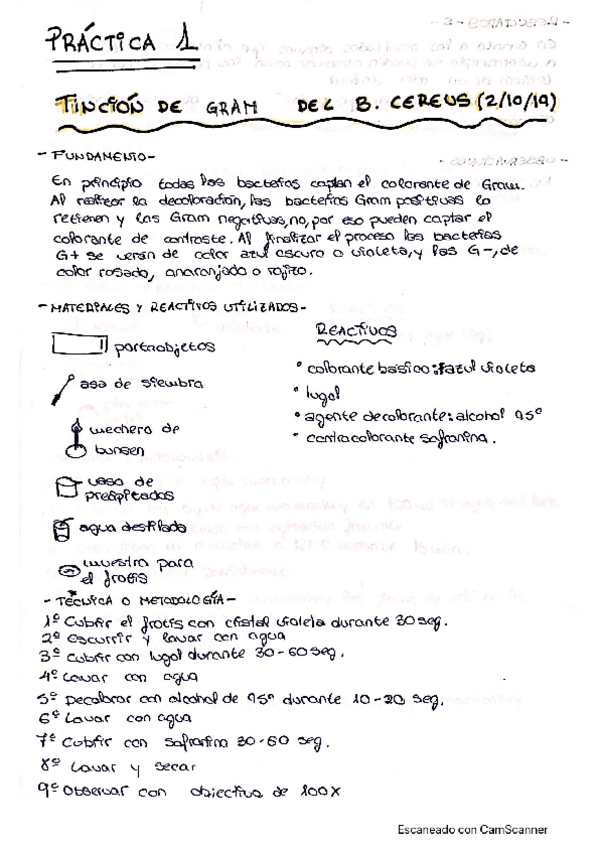 PRÁCTICA 1
TINCIÓN DE GRAM DEL B. CEREUS (2/10/19)
- FUNDAMENTO -
En principio todas las bacterias captan el colorante de Gram.
Al realizar la decoloración, las bacterias Gram positivas lo
retienen y las Gram negativas, no, por eso pueden captar el
colorante de contraste. Al finalizar el proceso las bacterias
G+ se verán de color azul oscuro o violeta, y las G-, de
color rosado, anaranjado o rojizo.
- MATERIALES Y REACTIVOS UTILIZADOS -
REACTIVOS
portaobjetos
• colorante básico: azul violeta
asa de siembra
• lugol
• agente decolorante: alcohol 95º
mechero de
bunsen
• contracolorante safranina.
vaso de
precipitados
agua destilada
muestra para
el frotis
- TÉCNICA O METODOLOGÍA -
1º Cubrir el frotis con cristal violeta durante 30 seg.
2º Escurrir y lavar con agua
3º Cubrir con lugol durante 30-60 seg.
4º Lavar con agua
5º Decolorar con alcohol de 95º durante 10-20 seg.
6º Lavar con agua
7º Cubrir con safranina 30-60 seg.
8º Lavar y secar
9º Observar con objectivo de 100X
Escaneado con CamScanner